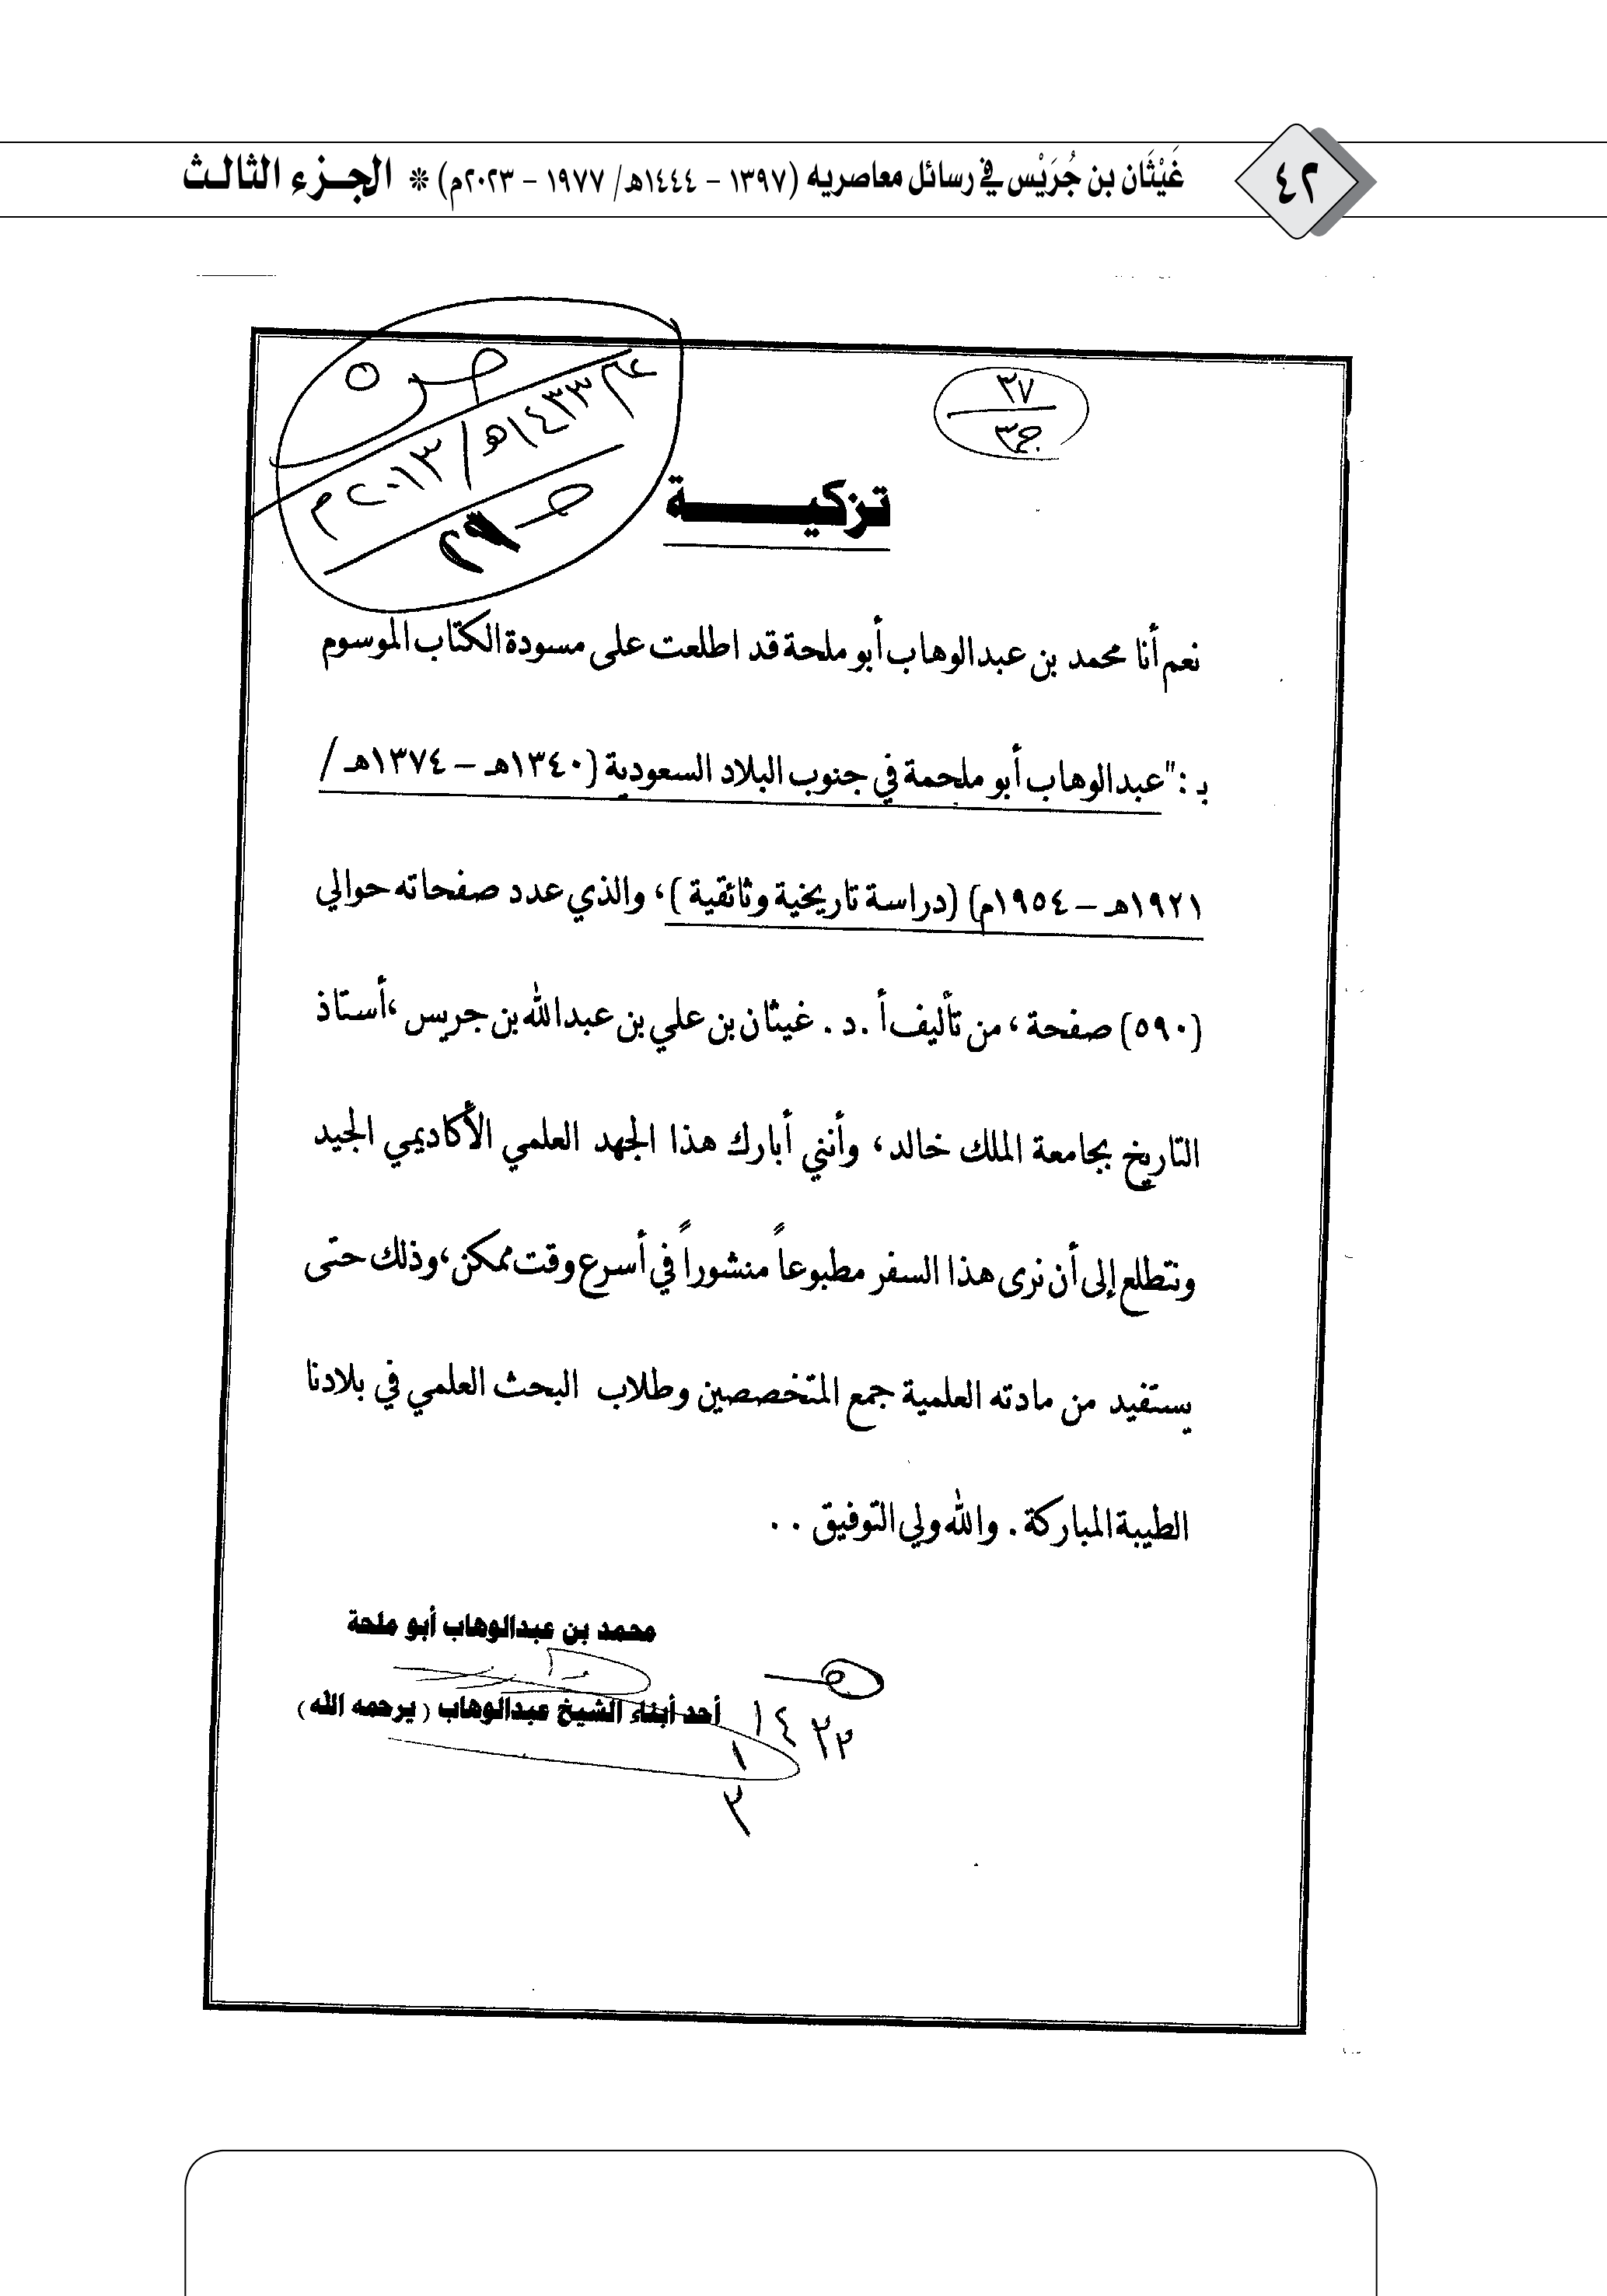 ٤٢
غَيْثَان بن جُرَيْس في رسائل معاصريه (١٣٩٧ – ١٤٤٤هـ/ ١٩٧٧ – ٢٠٢٣م) * الجـزء الثالـث
٣٧
ج٣
عام ١٤٣٣هـ/ ٢٠١٣م
تزكيـــــة
نعم أنا محمد بن عبدالوهاب أبو ملحة قد اطلعت على مسودة الكتاب الموسوم
بـ : "عبدالوهاب أبو ملحمة في جنوب البلاد السعودية (١٣٤٠هـ – ١٣٧٤هـ /
١٩٢١هـ – ١٩٥٤م) (دراسة تاريخية وثائقية )، والذي عدد صفحاته حوالي
(٥٩٠) صفحة ، من تأليف أ .د . غيثان بن علي بن عبدالله بن جريس ،أستاذ
التاريخ بجامعة الملك خالد، وأنني أبارك هذا الجهد العلمي الأكاديمي الجيد
ونتطلع إلى أن نرى هذا السفر مطبوعاً منشوراً في أسرع وقت ممكن،وذلك حتى
يستفيد من مادته العلمية جمع المتخصصين وطلاب البحث العلمي في بلادنا
الطيبة المباركة . والله ولي التوفيق . .
محمد بن عبدالوهاب أبو ملحة
أحد أبناء الشيخ عبدالوهاب ( يرحمه الله )